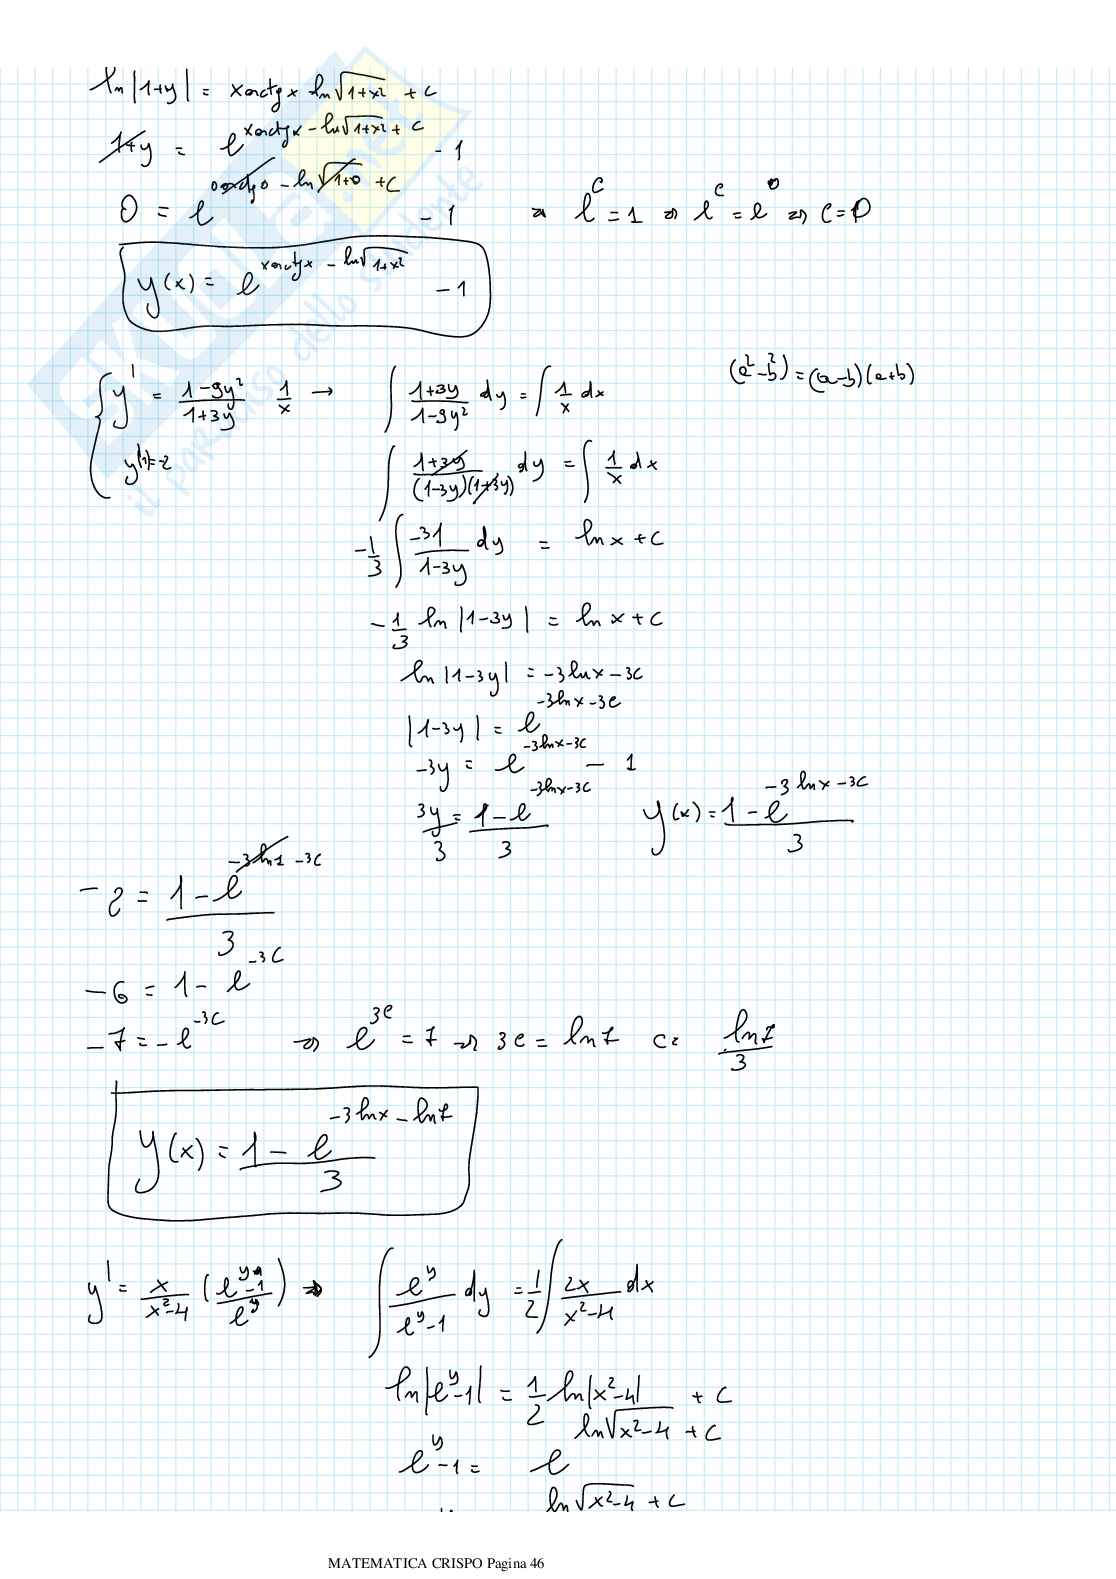 ln|1+y| = x arctg x ln√(1+x²) + c
1+y = e^(x arctg x - ln√(1+x²) + c) - 1
0 = e^(0 arctg 0 - ln√(1+0) + c) - 1 ⇒ e^c = 1 ⇒ e^c = e^0 ⇒ c = 0
y(x) = e^(x arctg x - ln√(1+x²)) - 1
{ y' = (1-9y²)/(1+3y) 1/x → ∫ (1+3y)/(1-9y²) dy = ∫ 1/x dx (a²-b²) = (a-b)(a+b)
y(1)=-2 ∫ (1+3y)/((1-3y)(1+3y)) dy = ∫ 1/x dx
-1/3 ∫ -31/(1-3y) dy = ln x + c
-1/3 ln|1-3y| = ln x + c
ln|1-3y| = -3 ln x - 3c
|1-3y| = e^(-3 ln x - 3c)
-3y = e^(-3 ln x - 3c) - 1
3y/3 = (1 - e^(-3 ln x - 3c))/3 y(x) = (1 - e^(-3 ln x - 3c))/3
-2 = (1 - e^(-3 ln 1 - 3c))/3
-6 = 1 - e^(-3c)
-7 = -e^(-3c) ⇒ e^(3c) = 7 ⇒ 3c = ln 7 c = ln 7/3
y(x) = (1 - e^(-3 ln x - ln 7))/3
y' = x/(x²-4) ((e^y - 1)/e^y) ⇒ ∫ e^y/(e^y - 1) dy = 1/2 ∫ 2x/(x²-4) dx
ln|e^y - 1| = 1/2 ln|x²-4| + c
e^y - 1 = e^(ln√(x²-4) + c)
ln√(x²-4) + c
MATEMATICA CRISPO Pagina 46